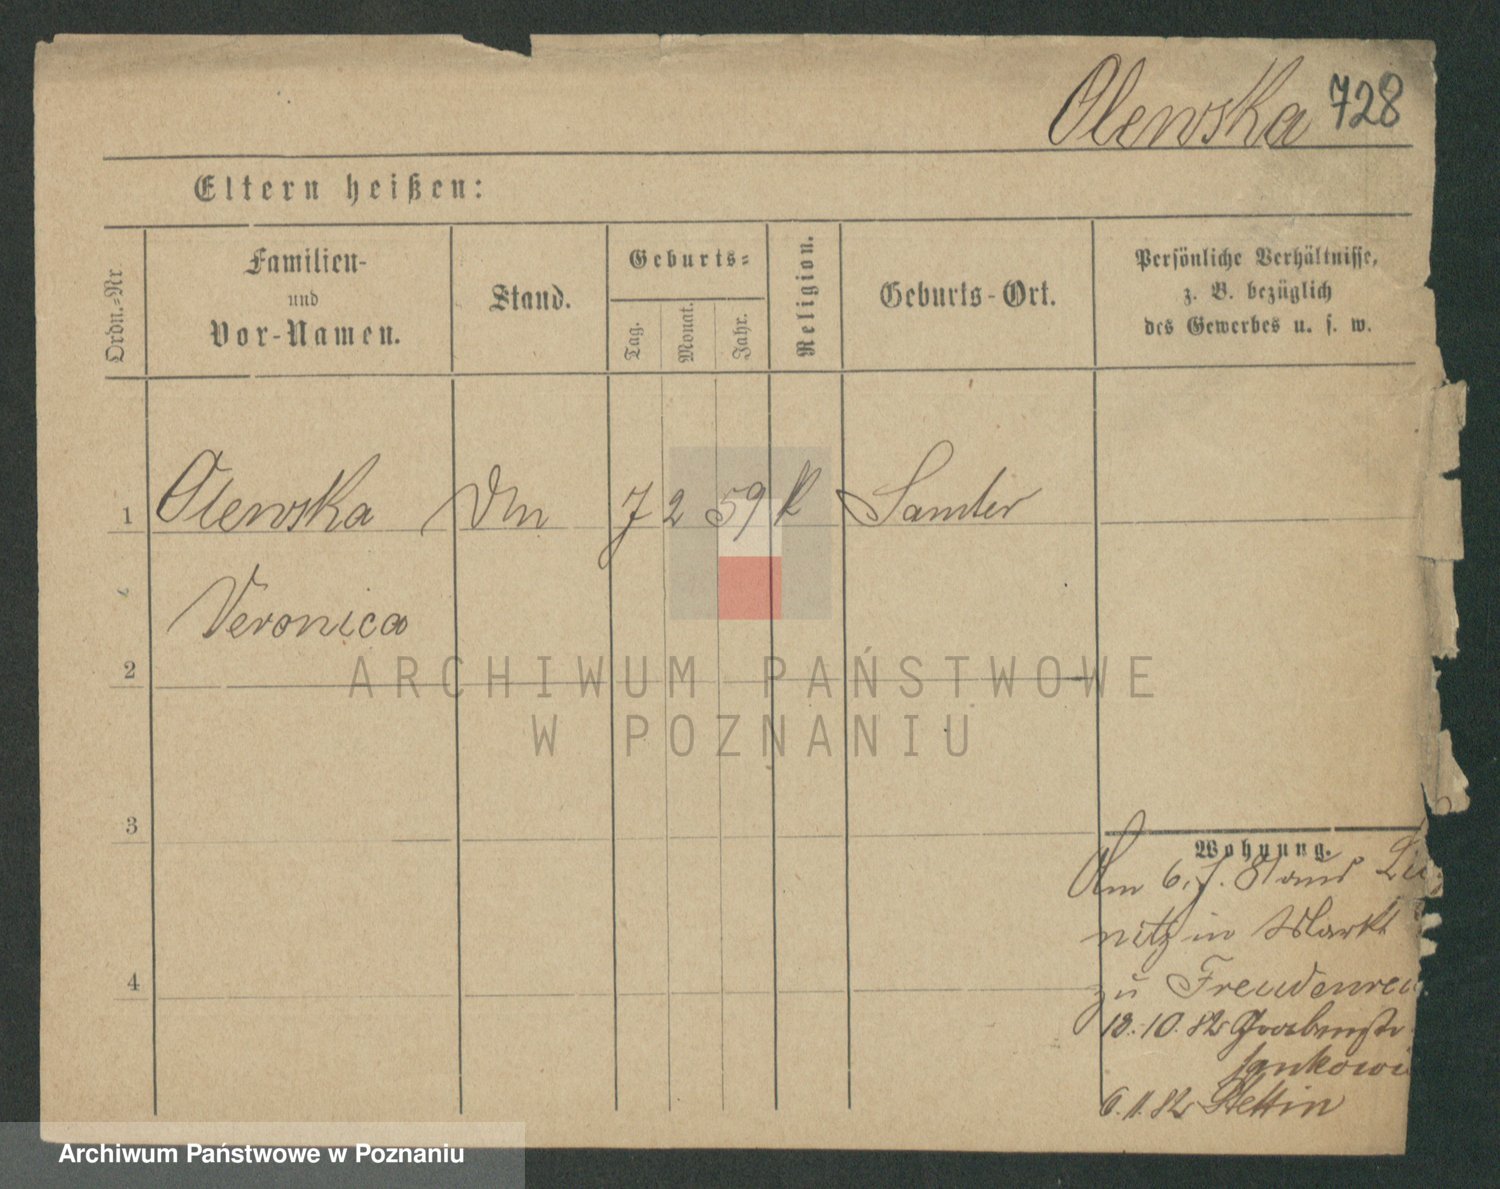 Olewska 728
Eltern heißen:
Ordn.=Nr
Familien-
und
Vor-Namen.
Stand.
Geburts=
Tag.
Monat.
Jahr.
Religion.
Geburts-Ort.
Persönliche Verhältnisse,
z. B. bezüglich
des Gewerbes u. s. w.
1 Olewska 7 2 59 k Samter
Veronica
2
ARCHIWUM PAŃSTWOWE
W POZNANIU
3
Wohnung.
Am 6.7.81 aus Lieg
nitz in Markt
4
zu Freudenrei
18.10.82 Grabenstr
Jankowi
6.11.82 Stettin
Archiwum Państwowe w Poznaniu